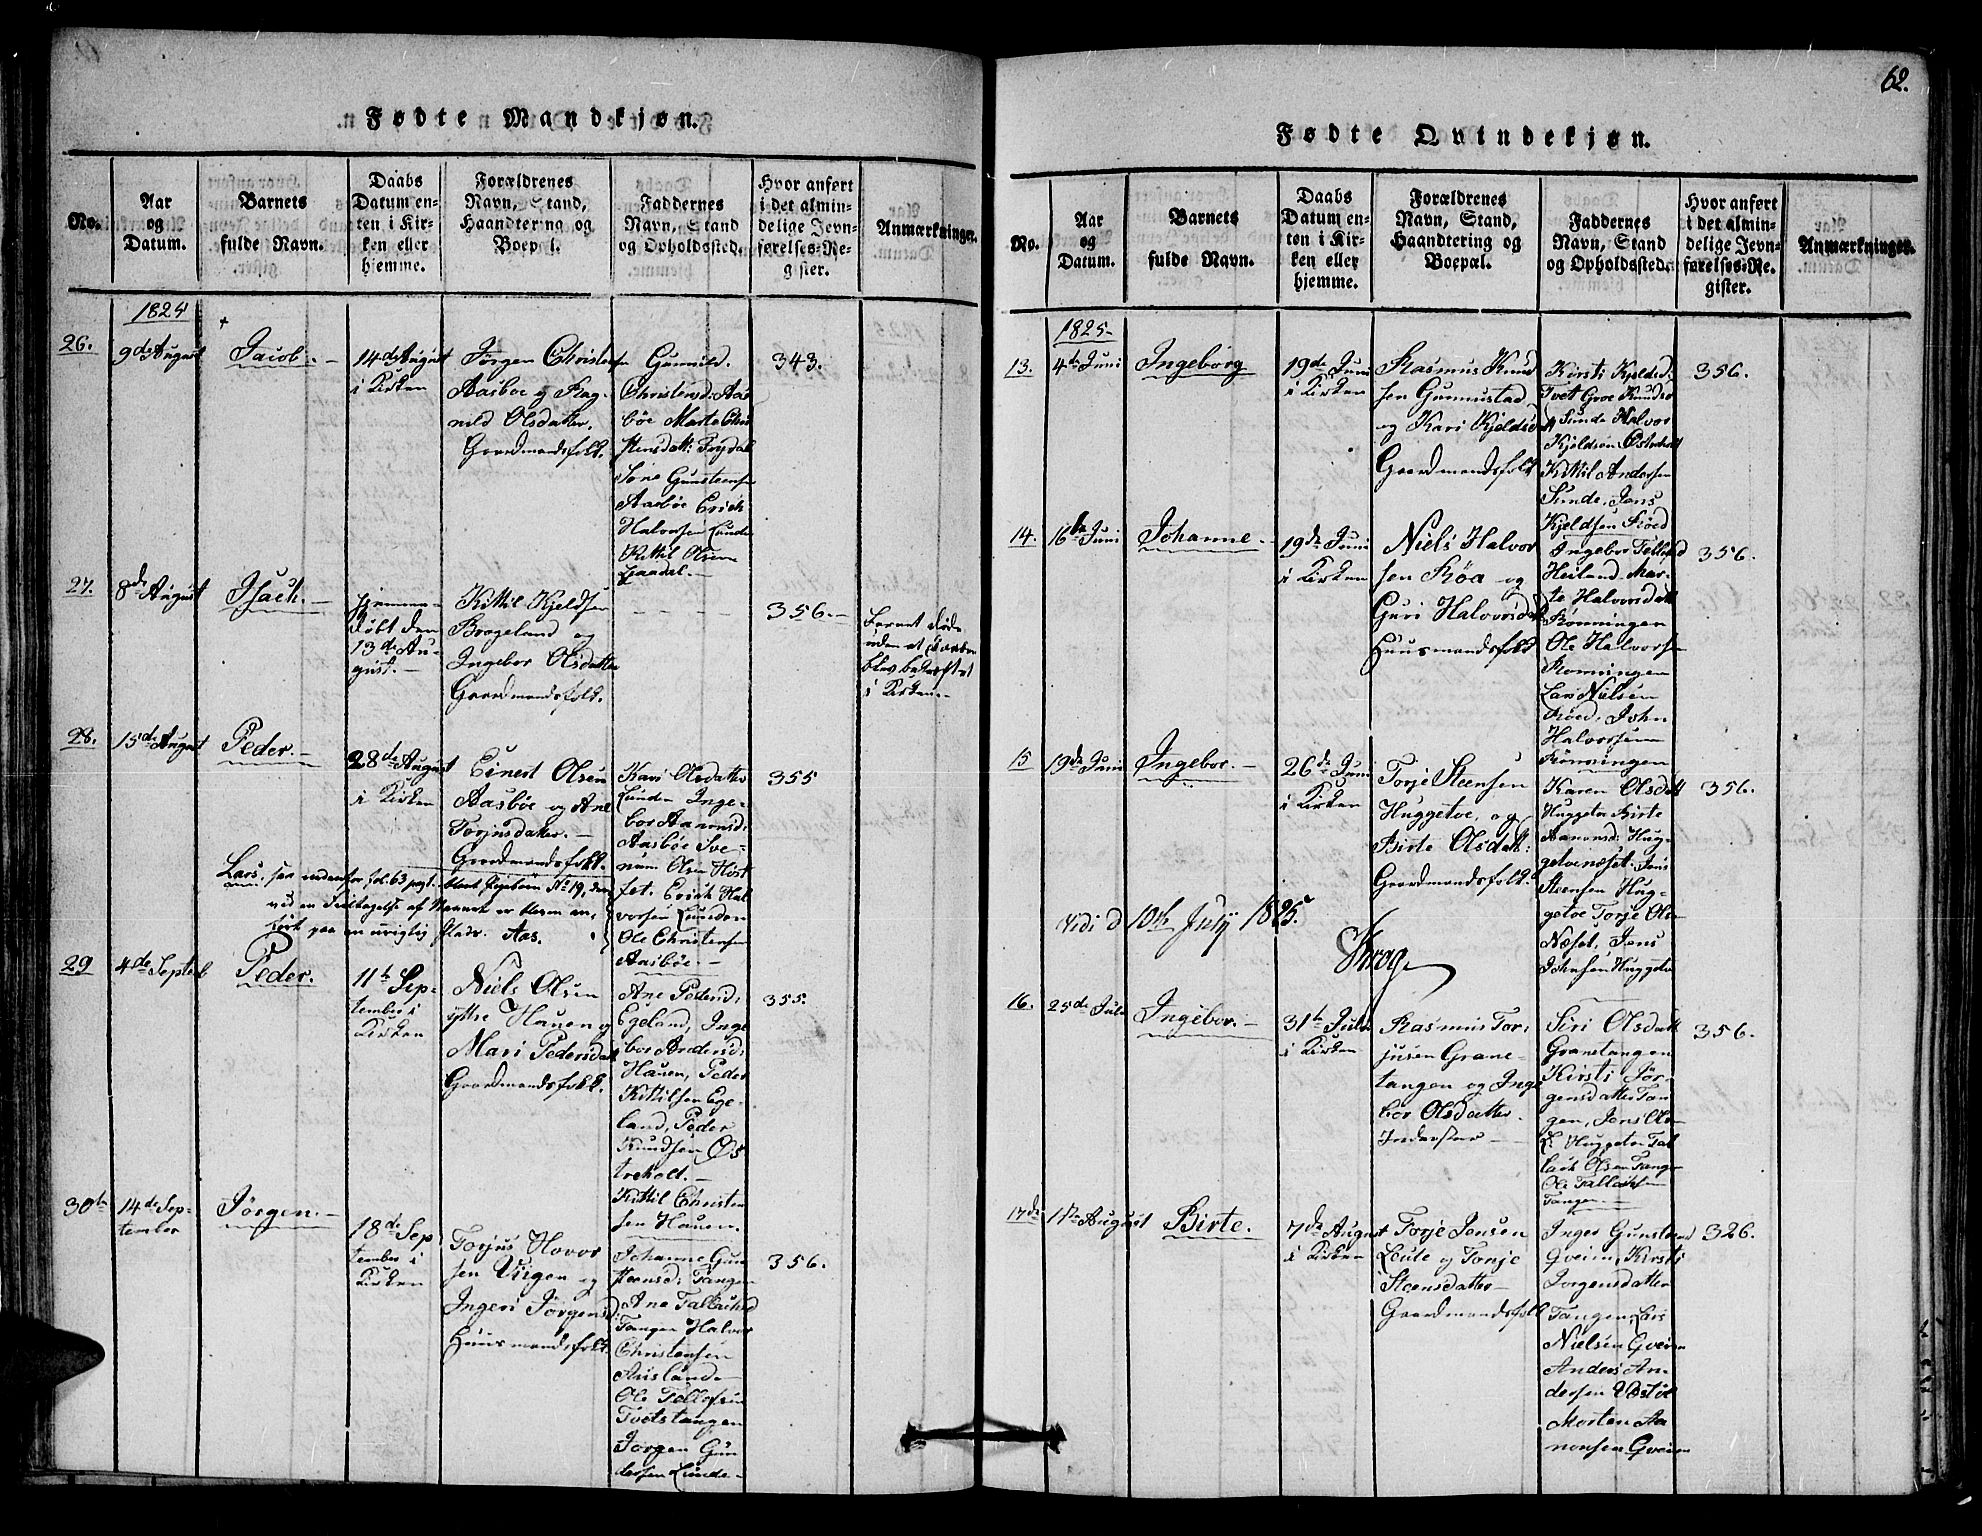 Fødte Mandkjøn.
No.
Aar
og
Datum.
Barnets
fulde Navn.
Daabs
Datum en-
ten i Kir-
ken eller
hjemme.
Forældrenes
Navn, Stand,
Haandtering og
Boepæl.
Faddernes
Navn, Stand
og Opholdssted.
Hvor anført
i det almin-
delige Jevn-
førelses-Re-
gister.
Anmærkninger.
1825
26.
9de August
Jacob.
14de August
i Kirken
Jørgen Christens
Aasbøe og Rag-
nild Olsdatter.
Gaardmandsfolk.
Gunnild.
Christensd: Aas
bøe Marte Chri
stensdatt:
Søne Gunsteens
Aasbøe Erich
Halvorsen Lunde
Kittil Olsen
343.
27.
8de August
Isach.
hjemme-
døbt den
13de Au-
gust.
Kittil Kjeldsen
Brogeland og
Ingebor Olsdatter
Gaardmandsfolk.
356.
Barnet døde
uden at Daaben
blev bekræftet
i Kirken
28.
15de August
Peder.
28de August
i Kirken
Einert Olsen
Aasbøe og Ane
Torjusdatter.
Gaardmandsfolk.
Kari Olsdatter
Lunden Inge-
bor Aanonsd:
Aasbøe Sve-
num Olsen
Erich Hal
vorsen Lunden
Ole Christensen
Aasbøe.
355
Lars, see nedenfor fol. 63
ved en Feiltagelse af Navnet er bleven an-
ført paa en urigtig Plads. Aas.
29
4de Septeb
Peder.
11te Sep-
tember i
Kirken
Niels Olsen
yttre Hauen og
Mari Pedersdatt
Gaardmandsfolk.
Ane Pedersd:
Egeland, Inge
bor Andersd:
Hauen, Peder
Kittilsen Ege-
land, Peder
Knudsen Øs
treholt.
Kittil Christen
sen Hauen.
355.
30te
14de Sep-
tember
Jørgen.
18de Sep
tember i
Kirken
Torjus Hovor
sen Viigen og
Ingeri Jørgensd:
Huusmandsfolk.
Johanne Gun
steensd: Tangen
Ane Tallachsd
Tangen Halvor
Christensen
Auslande
Ole Tellefsen
Tvetstangen
Jørgen Gun
dersen Lunde
356.
62.
Fødte Qvindekjøn.
No.
Aar
og
Datum.
Barnets
fulde Navn.
Daabs
Datum en-
ten i Kir-
ken eller
hjemme.
Forældrenes
Navn, Stand,
Haandtering og
Boepæl.
Faddernes
Navn, Stand
og Opholdssted.
Hvor anført
i det almin-
delige Jevn-
førelses-Re-
gister.
Anmærkninger.
1825
13.
4de Juni
Ingeborg
19de Juni
i Kirken
Rasmus Knud
sen Gunnustad
og Kari Kjeldsd
Gaardmandsfolk
Kirsti Kjeldsd:
Tvet Groe Knudsd
Sunde Halvor
Kjeldsen Østerholt
Kittil Andersen
Sunde, Jens
Kjeldsen Røed
356.
14.
16de Juni
Johanne
19de Juni
i Kirken
Niels Halvor
sen Røa og
Guri Halvorsdatt
Huusmandsfolk
Ingebor Tellefsd
Heiland Mar-
te Halvorsdatt
Rønningen
Ole Halvorsen
Rønningen
Lars Nielsen
Røed, John
Halvorsen
Rønningen
356.
15
19de Juni
Ingebor.
26de Juni
i Kirken
Torje Steensen
Huggetve, og
Birte Olsdatt:
Gaardmandsfolk.
Karen Olsdatt
Huggetve Birte
Aanonsd: Hug-
getvenæset. Jens
Steensen Hug-
getve Torje Ols-
Næset, Jens
Johnsen Huggetve
356.
Vidi d 10de July 1825.
Krog
16.
25de Juli
Ingebor.
31te Juli
i Kirken
Rasmus Tor-
jusen Grane-
tangen og Inge
bor Olsdatter.
Inderster
Siri Olsdatt
Granetangen
Kirsti Jør-
gensdatter Tan
gen, Jens Ols-
Huggetve Tal
lach Olsen Tangen
Ole Tallachsen
Tangen
356.
17de
1te August
Birte.
7de August
i Kirken
Torje Jensen
Leite og Tonje
Steensdatter
Gaardmandsfolk
Inger Gunsteensd
Gveien, Kirsti
Jørgensdatter
Tangen, Lars
Nielsen Gveien
Anders An
dersen Vestøl
Morten Aa
nonsen Gveien
326.